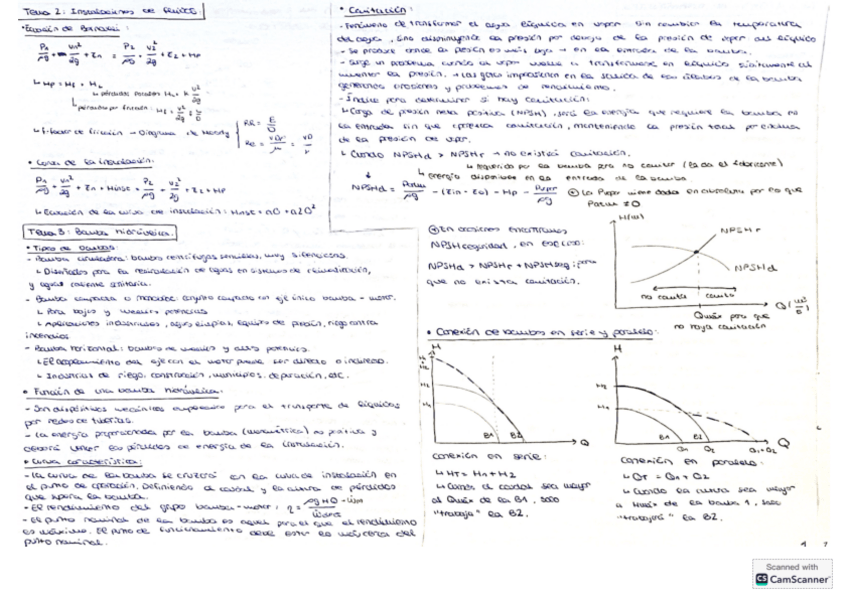 Tema 2: Instalaciones de fluidos:
• Ecuación de Bernoulli:
P1/ρg + v1²/2g + z1 = P2/ρg + v2²/2g + z2 + Hp
↳ Hp = Hf + HL
↳ f: factor de fricción → Diagrama de Moody
• Curva de la instalación:
P1/ρg + v1²/2g + z1 + Hinst = P2/ρg + v2²/2g + z2 + Hp
↳ Ecuación de la curva de instalación:
Tema 3: Bombas hidráulicas.
• Tipos de bombas:
- Bomba circuladora: bombas centrífugas sencillas, muy silenciosas.
↳ Diseñados para la recirculación de aguas en sistemas de climatización,
y agua caliente sanitaria.
- Bomba compacta o monobloc: conjunto compacto con eje único bomba - motor.
↳ Para bajas y medias potencias
↳ Aplicaciones industriales, aguas limpias, equipos de presión, riego contra
incendios.
- Bomba horizontal: bombas de medias y altas potencias.
↳ El acoplamiento del eje con el motor puede ser directo o indirecto.
↳ Industrias de riego, construcción, municipios, depuración, etc.
• Función de una bomba hidráulica:
- Son dispositivos mecánicos empleados para el transporte de líquidos
por redes de tuberías.
- La energía proporcionada por la bomba (manométrica) es positiva y
deberá vencer las pérdidas de energía de la instalación.
• Curva característica:
- La curva de la bomba se cruzará con la curva de instalación en
el punto de operación. Definiendo el caudal y la altura de pérdidas
que supera la bomba.
- El rendimiento del grupo bomba-motor:
- El punto nominal de la bomba es aquel para el que el rendimiento
es máximo. El punto de funcionamiento debe estar lo más cerca del
punto nominal.
• Cavitación:
- Fenómeno de transformar el agua líquida en vapor sin cambiar la temperatura
del agua, sino disminuyendo la presión por debajo de la presión de vapor del líquido
- Se produce donde la presión es más baja → en la entrada de la bomba.
- Surge un problema cuando el vapor vuelve a transformarse en líquido al
aumentar la presión, → las gotas impactan en la salida de los álabes de la bomba
generando erosiones y problemas de rendimiento.
- Índice para determinar si hay cavitación:
↳ Carga de presión neta positiva (NPSH), será la energía que requiere la bomba en
la entrada sin que aparezca cavitación, manteniendo la presión total por encima
de la presión de vapor.
↳ Cuando NPSHd > NPSHr → no existirá cavitación.
↳ requerida por la bomba para no cavitar (la da el fabricante)
↳ energía disponible en la entrada de la bomba
NPSHd = Patm/ρg - (z1 - z0) - Hp - Pvapor/ρg
La Pvapor viene dada en absoluta por lo que
Patm ≠ 0
En ocasiones encontramos
NPSH seguridad, en ese caso:
NPSHd > NPSHr + NPSHseg; para
que no exista cavitación.
H(m)
NPSHr
NPSHd
no cavita
cavita
Q (m³/s)
Qmáx para que
no haya cavitación
• Conexión de bombas en serie y paralelo:
H
B1
B2
Q
conexión en serie:
↳ HT = H1 + H2
↳ Cuando el caudal sea mayor
al Qmáx de la B1, solo
"trabaja" la B2.
H
H2
H1
B1
B2
Q1
Q2
Q1+Q2
Q
conexión en paralelo:
↳ QT = Q1 + Q2
↳ Cuando la altura sea mayor
a Hmáx de la bomba 1, solo
"trabajará" la B2.
Scanned with
CS CamScanner